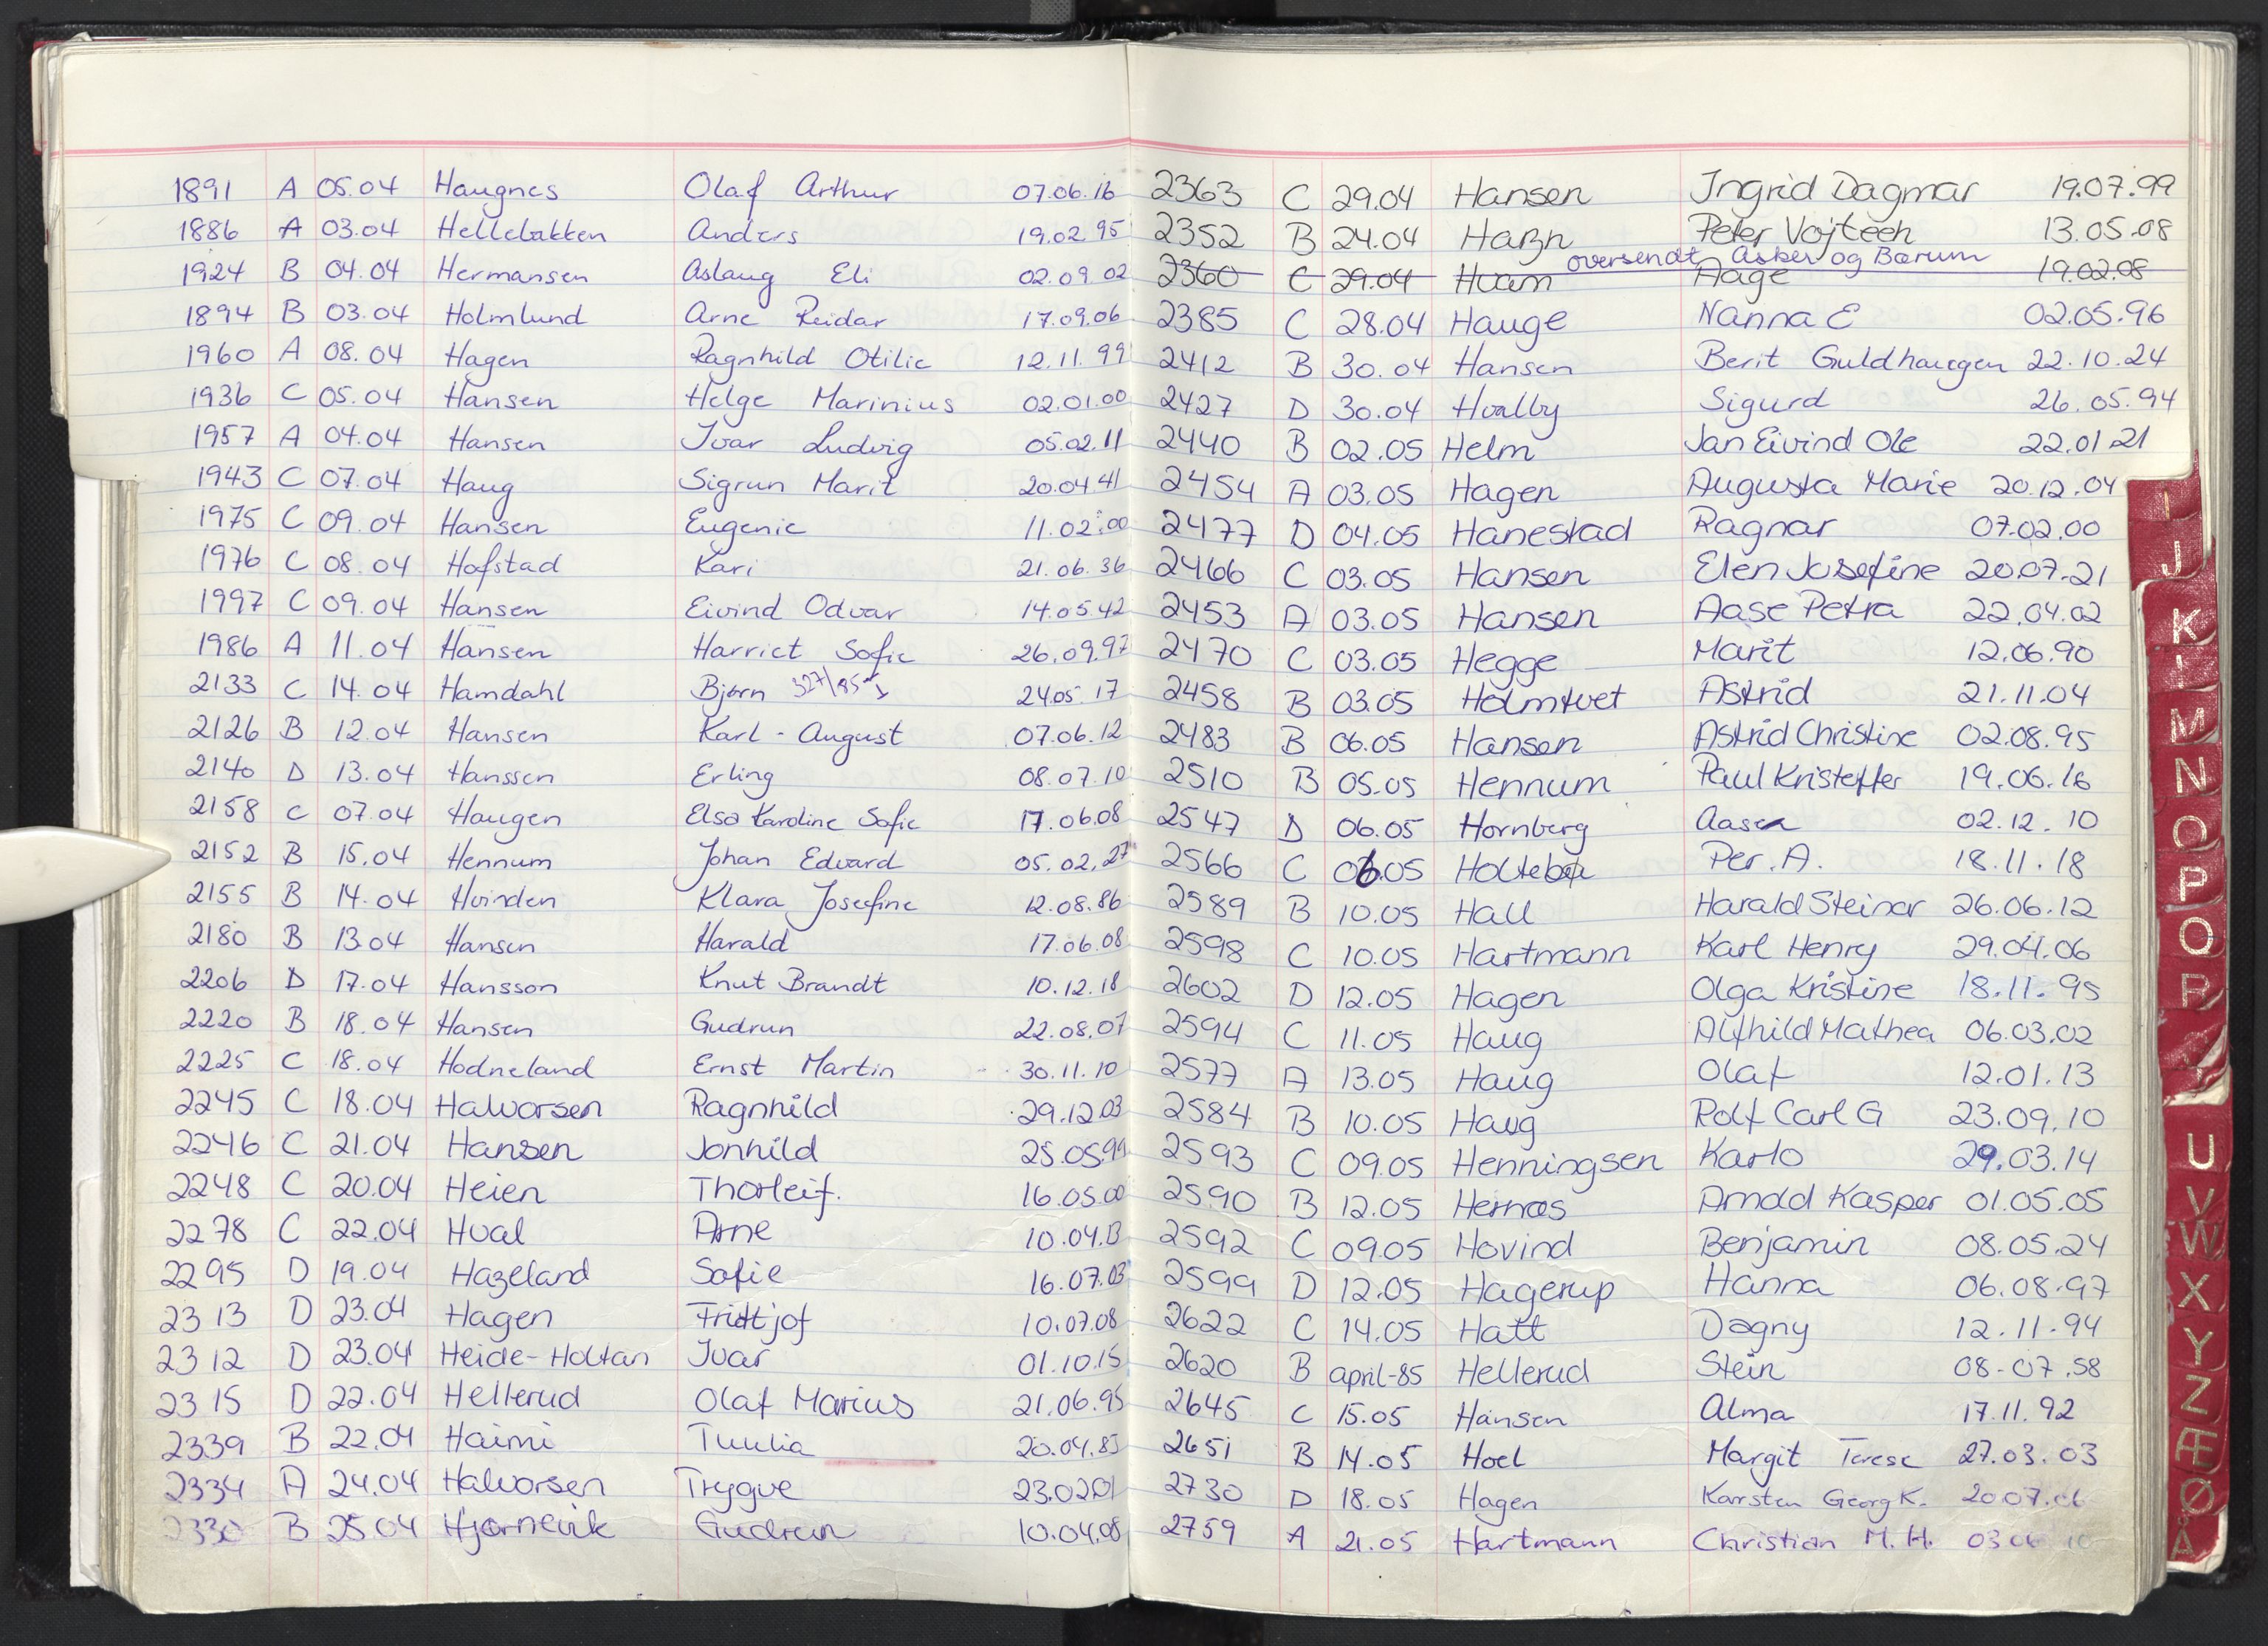 1891 A 05.04 Haugnes Olaf Arthur 07.06.16
1886 A 03.04 Hellebakken Anders 19.02.95
1924 B 04.04 Hermansen Aslaug Eli 02.09.02
1894 B 03.04 Holmlund Arne Reidar 17.09.06
1960 A 08.04 Hagen Ragnhild Otilie 12.11.99
1936 C 05.04 Hansen Helge Marinius 02.01.00
1957 A 04.04 Hansen Ivar Ludvig 05.02.11
1943 C 07.04 Haug Sigrun Marit 20.04.41
1975 C 09.04 Hansen Eugenie 11.02.00
1976 C 08.04 Hofstad Kari 21.06.36
1997 C 09.04 Hansen Eivind Odvar 14.05.42
1986 A 11.04 Hansen Harriet Sofie 26.09.97
2133 C 14.04 Hamdahl Bjørn 327/85 24.05.17
2126 B 12.04 Hansen Karl-August 07.06.12
2140 D 13.04 Hanssen Erling 08.07.10
2158 C 07.04 Haugen Elsa Karoline Sofie 17.06.08
2152 B 15.04 Hennum Johan Edvard 05.02.27
2155 B 14.04 Hvinden Klara Josefine 12.08.86
2180 B 13.04 Hansen Harald 17.06.08
2206 D 17.04 Hansson Knut Brandt 10.12.18
2220 B 18.04 Hansen Gudrun 22.08.07
2225 C 18.04 Hodneland Ernst Martin 30.11.10
2245 C 18.04 Halvorsen Ragnhild 29.12.03
2246 C 21.04 Hansen Jonhild 25.05.99
2248 C 20.04 Heien Thorleif. 16.05.00
2278 C 22.04 Hval Arne 10.04.13
2295 D 19.04 Hageland Sofie 16.07.03
2313 D 23.04 Hagen Fridtjof 10.07.08
2312 D 23.04 Heide-Holtan Ivar 01.10.15
2315 D 22.04 Hellerud Olaf Marius 21.06.95
2339 B 22.04 Haimi Tuulia 20.04.85
2334 A 24.04 Halvorsen Trygve 23.02.01
2330 B 25.04 Hjørnevik Gudrun 10.04.08
2363 C 29.04 Hansen Ingrid Dagmar 19.07.99
2352 B 24.04 Haßn Peter Vojteeh 13.05.08
oversendt Asker og Bærum
2360 C 29.04 Hvam Aage 19.02.08
2385 C 28.04 Hauge Nanna E 02.05.96
2412 B 30.04 Hansen Berit Guldhaugen 22.10.24
2427 D 30.04 Hvalby Sigurd 26.05.94
2440 B 02.05 Helm Jan Eivind Ole 22.01.21
2454 A 03.05 Hagen Augusta Marie 20.12.04
2477 D 04.05 Hanestad Ragnar 07.02.00
2466 C 03.05 Hansen Elen Josefine 20.07.21
2453 A 03.05 Hansen Aase Petra 22.04.02
2470 C 03.05 Hegge Marit 12.06.90
2458 B 03.05 Holmtvet Astrid 21.11.04
2483 B 06.05 Hansen Astrid Christine 02.08.95
2510 B 05.05 Hennum Paul Kristeffer 19.06.16
2547 D 06.05 Hornberg Aasea 02.12.10
2566 C 06.05 Holtebø Per. A. 18.11.18
2589 B 10.05 Hall Harald Steinar 26.06.12
2598 C 10.05 Hartmann Karl Henry 29.04.06
2602 D 12.05 Hagen Olga Kristine 18.11.95
2594 C 11.05 Haug Alfhild Mathea 06.03.02
2577 A 13.05 Haug Olaf 12.01.13
2584 B 10.05 Haug Rolf Carl G 23.09.10
2593 C 09.05 Henningsen Karlo 29.03.14
2590 B 12.05 Hernæs Arnold Kasper 01.05.05
2592 C 09.05 Hovind Benjamin 08.05.24
2599 D 12.05 Hagerup Hanna 06.08.97
2622 C 14.05 Hatt Dagny 12.11.94
2620 B april-85 Hellerud Stein 08-07.58
2645 C 15.05 Hansen Alma 17.11.92
2651 B 14.05 Hoel Margit Terese 27.03.03
2730 D 18.05 Hagen Karsten Georg K. 20.07.06
2759 A 21.05 Hartmann Christian M. H. 03 06 10
I
J
K
M
N
O
P
Q
R
U
V
W
X
Y
Z
Æ
Ø
Å